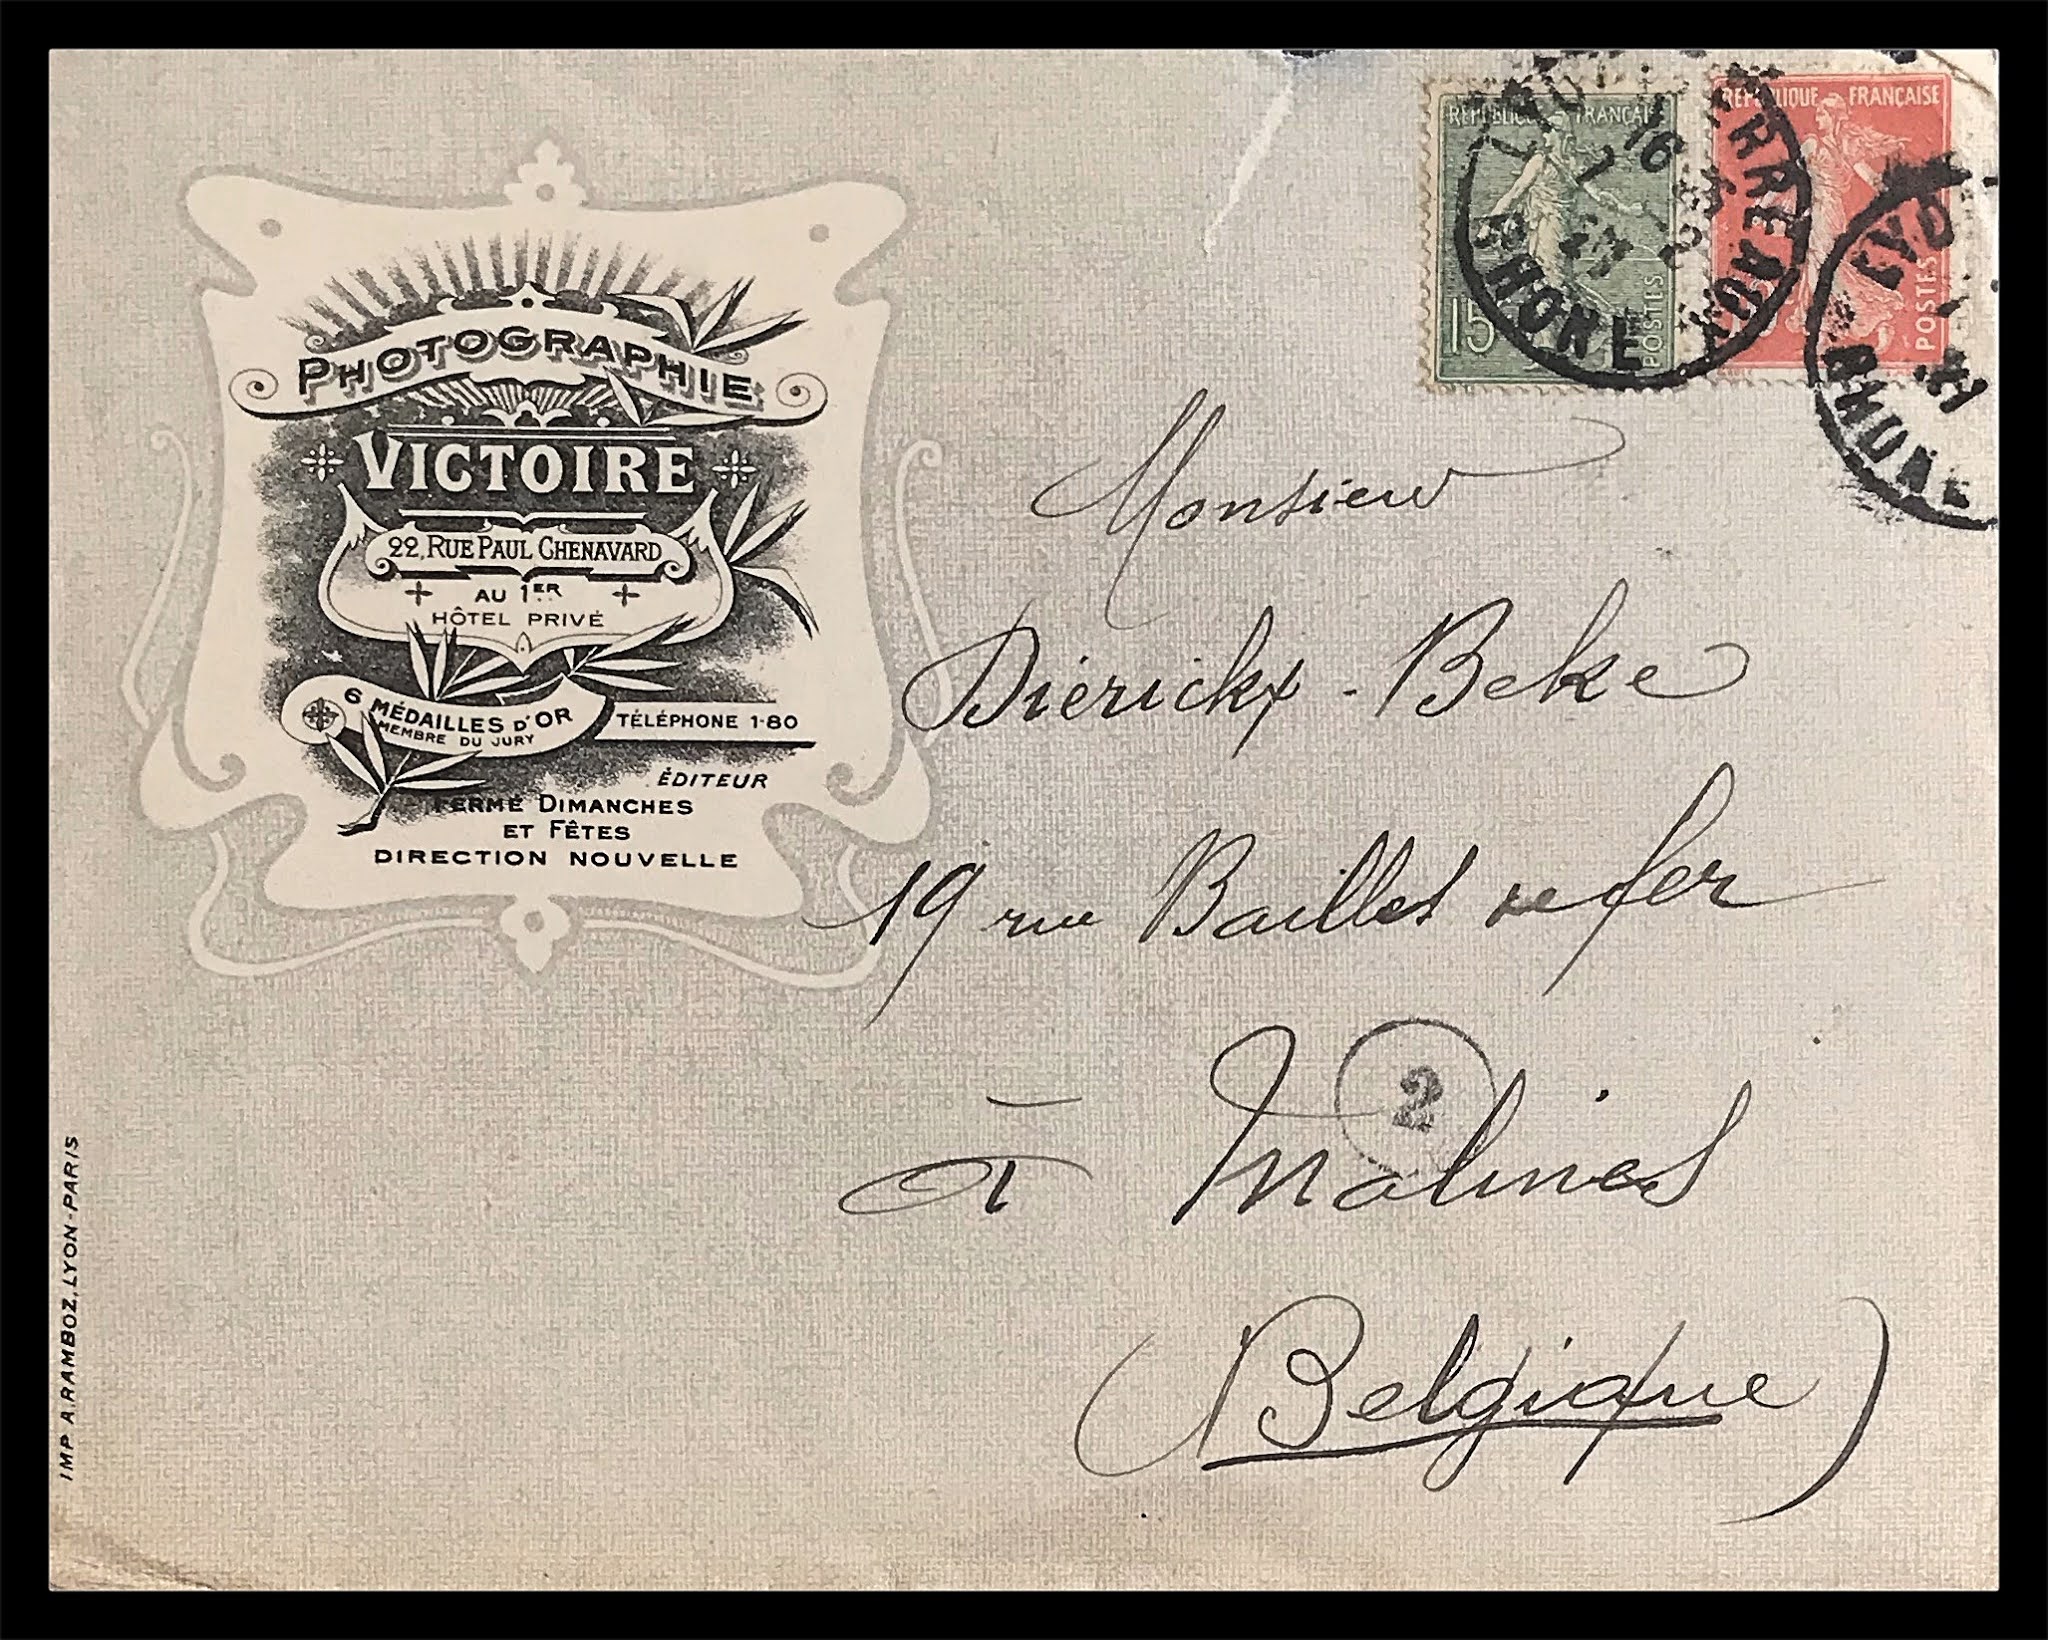 PHOTOGRAPHIE
VICTOIRE
22, RUE PAUL CHENAVARD
AU 1ER
HÔTEL PRIVÉ
6 MÉDAILLES D'OR
MEMBRE DU JURY
TÉLÉPHONE 1-80
ÉDITEUR
FERMÉ DIMANCHES
ET FÊTES
DIRECTION NOUVELLE
IMP. A. RAMBOZ, LYON-PARIS
REPUBLIQUE FRANÇAISE
15
POSTES
REPUBLIQUE FRANÇAISE
POSTES
LYON TERREAUX
16
RHONE
RHONE
Monsieur
Dierickx-Beke
19 rue Bailles de fer
2
à Malines
(Belgique)